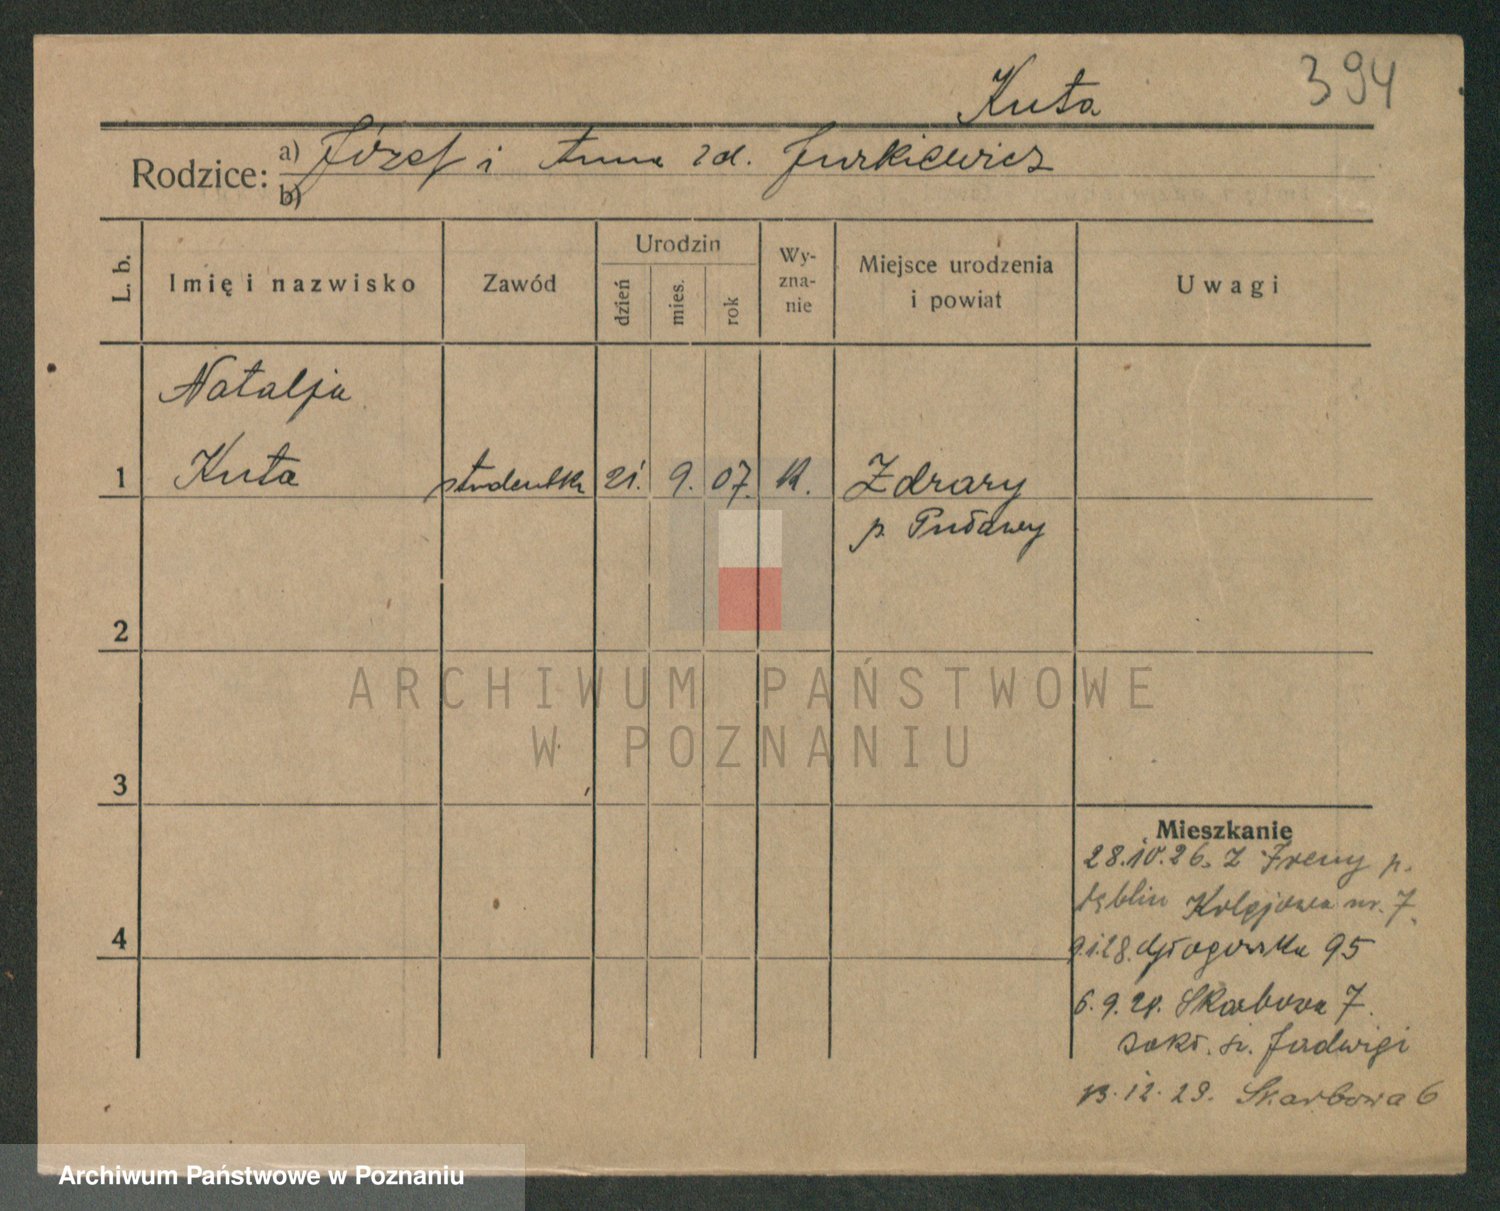 Kuta 394
Rodzice: a) Józef i Anna zd. Jurkiewicz
b)
L. b. Imię i nazwisko Zawód Urodzin dzień mies. rok Wy-zna-nie Miejsce urodzenia i powiat Uwagi
Natalja
1 Kuta studentka 21. 9. 07. K. Zdrary
p. Puławy
2
3
4
Mieszkanie
28.10.26. z Ireny p.
Dęblin Kolejowa nr. 7.
9.1.28. Głogowska 95
6. 9. 28. Skarbowa 7.
św. Jadwigi
13.12.29. Skarbowa 6
ARCHIWUM PAŃSTWOWE
W POZNANIU
Archiwum Państwowe w Poznaniu